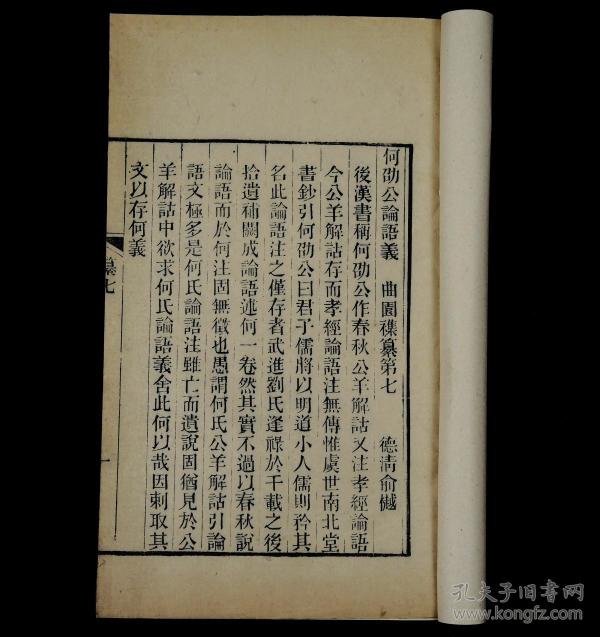 何劭公論語義　曲園襍纂第七　德清俞樾
後漢書稱何劭公作春秋公羊解詁又注孝經論語
今公羊解詁存而孝經論語注無傳惟虞世南北堂
書鈔引何劭公曰君子儒將以明道小人儒則矜其
名此論語注之僅存者武進劉氏逢祿於千載之後
拾遺補闕成論語述何一卷然其實不過以春秋說
論語而於何注固無徵也愚謂何氏公羊解詁引論
語文極多是何氏論語注雖亡而遺說固猶見於公
羊解詁中欲求何氏論語義舍此何以哉因刺取其
文以存何義
纂七
一
孔夫子旧书网
www.kongfz.com